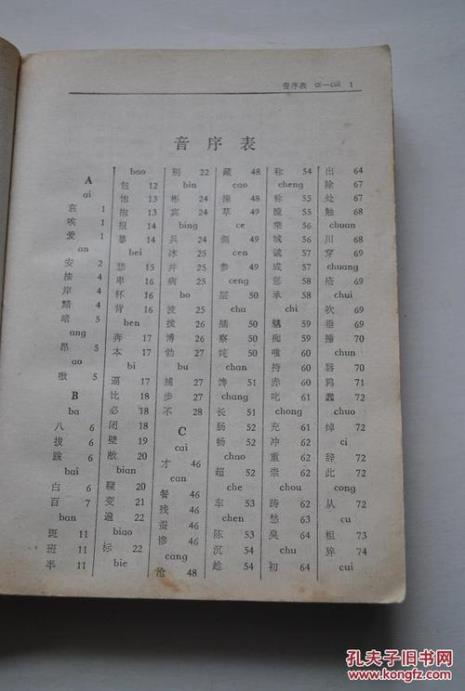 音序表 ai—cui 1
音序表
A
ai
哀 1
唉 1
爱 1
an
安 2
按 4
岸 4
黯 4
暗 5
ang
昂 5
ao
傲 5
B
ba
八 6
拔 6
跋 6
bai
白 6
百 7
ban
斑 11
班 11
半 11
bao
包 12
饱 13
抱 13
报 14
暴 14
bei
悲 15
卑 16
杯 16
背 16
ben
奔 17
本 17
bi
逼 17
比 18
必 18
闭 18
壁 19
敝 20
bian
鞭 20
变 21
遍 22
biao
标 22
bie
别 22
bin
彬 24
宾 24
bing
兵 24
冰 25
并 25
病 25
bo
波 25
拨 26
博 27
勃 27
bu
捕 27
步 27
不 28
C
cai
才 46
can
餐 46
残 46
蚕 46
惨 46
cang
沧 48
藏 48
cao
操 48
草 49
ce
侧 49
cen
参 49
ceng
层 50
cha
插 50
察 50
诧 50
chan
谗 51
chang
长 51
肠 52
畅 52
chao
超 52
che
车 53
chen
陈 53
沉 54
称 54
cheng
称 55
城 56
诚 57
成 57
惩 58
承 58
chi
魑 59
痴 59
持 60
赤 60
叱 61
chong
充 61
冲 62
重 62
崇 62
chou
踌 63
愁 63
臭 64
chu
初 64
出 64
除 67
处 67
触 68
chuan
川 68
穿 69
chuang
疮 69
chui
吹 69
垂 69
捶 70
chun
唇 70
鹑 71
蠢 72
chuo
绰 72
ci
辞 72
此 72
cong
从 72
cu
粗 73
猝 74
cui
孔夫子旧书网